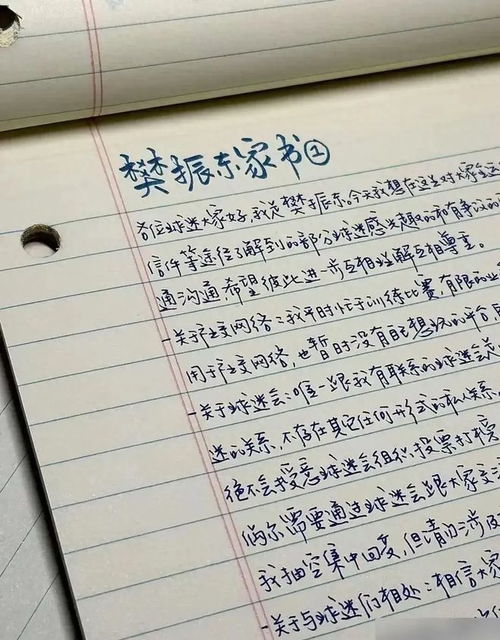 樊振东家书①
各位球迷大家好,我是樊振东。今天我想在这里对大家
信件等途径了解到的部分球迷感兴趣的和有争议的
通沟通,希望彼此进一步互相理解互相尊重。
-关于社交网络:我平时忙于训练比赛,有限的业
用于社交网络,也暂时没有自己想玩的平台
-关于球迷会:唯一跟我有联系的球迷会
迷的关系,不存在其它任何形式的私人关系,
绝不会授意球迷会组织投票打榜
偶尔需要通过球迷会跟大家交
我抽空集中回复,但请勿涉
-关于与球迷们相处:相信大家